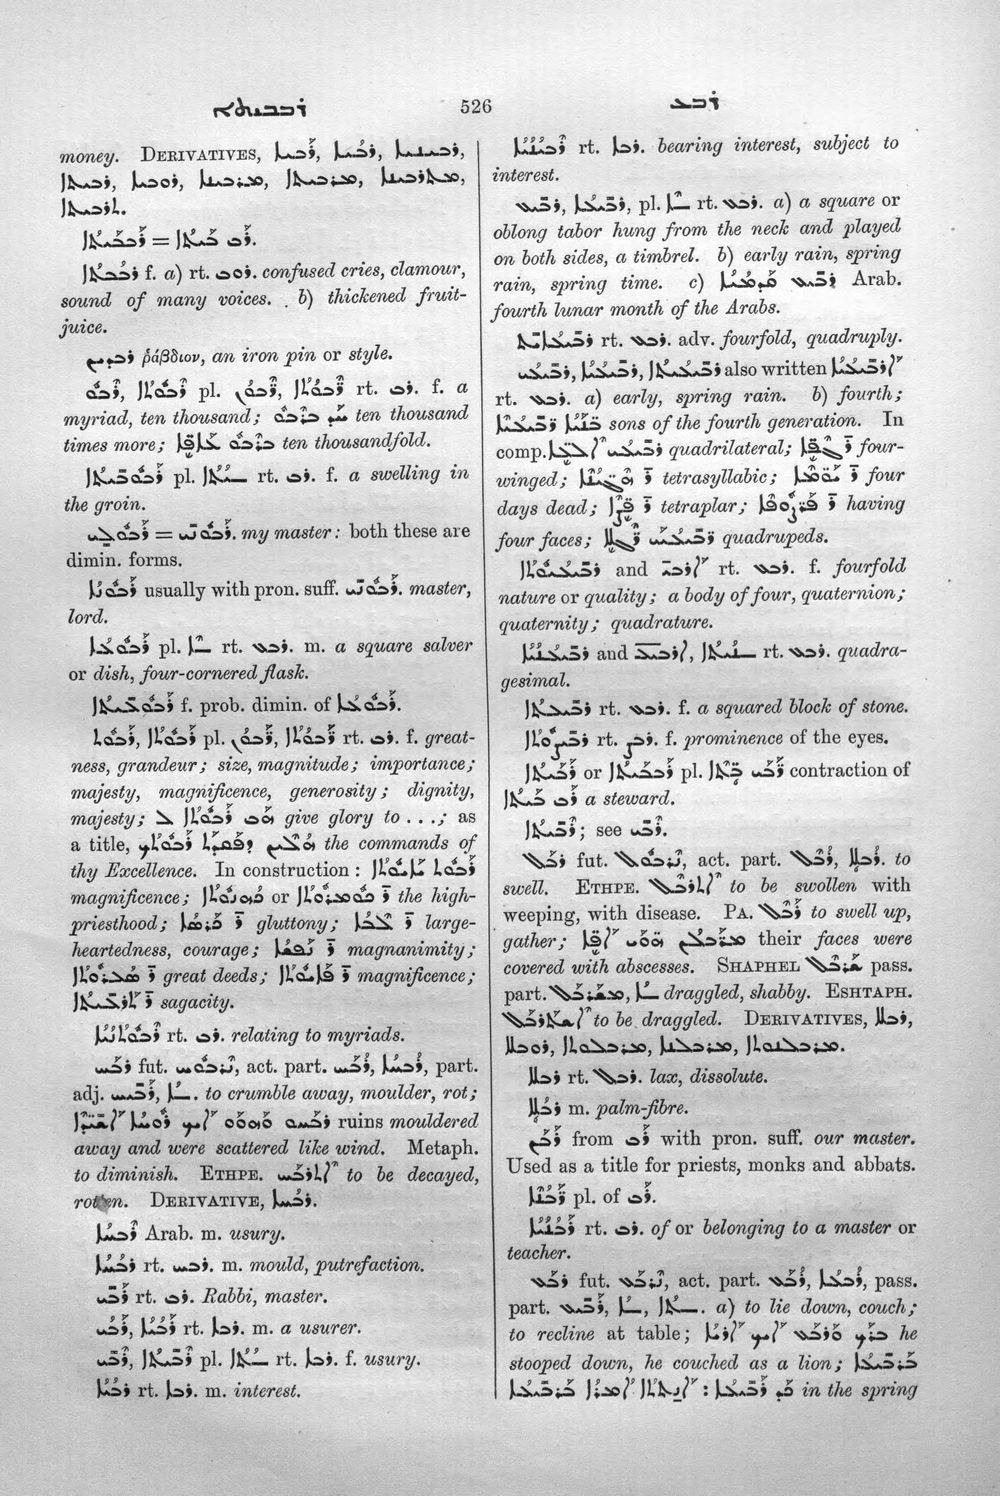 ܪܒܒܝܬܐ 526 ܪܒܥ
money. DERIVATIVES, ܪܒܝܐ, ܪܒܝܐ, ܪܒܝܢܝܐ,
ܪܒܝܬܐ, ܪܘܒܝܐ, ܡܪܒܝܢܐ, ܡܪܒܝܬܐ, ܡܬܪܒܝܢܐ,
ܬܪܒܝܬܐ.
ܪܒܒܝܬܐ = ܪܒ ܒܝܬܐ.
ܪܒܒܬܐ f. a) rt. ܪܘܒ. confused cries, clamour,
sound of many voices. b) thickened fruit-
juice.
ܪܒܕܝܢ ῥάβδιον, an iron pin or style.
ܪܒܘ, ܪܒܘܬܐ pl. ܪܒܘܢ, ܪܒܘܬܐ rt. ܪܒ. f. a
myriad, ten thousand; ܚܕ ܒܪܒܘ ten thousand
times more; ܒܪܒܘ ten thousandfold.
ܪܒܘܒܝܬܐ pl. rt. ܪܒ. f. a swelling in
the groin.
ܪܒܘܠܝ = ܪܒܘܢܝ. my master: both these are
dimin. forms.
ܪܒܘܢܐ usually with pron. suff. ܪܒܘܢܝ. master,
lord.
ܪܒܘܥܐ pl. rt. ܪܒܥ. m. a square salver
or dish, four-cornered flask.
ܪܒܘܥܝܬܐ f. prob. dimin. of ܪܒܘܥܐ.
ܪܒܘܬ, ܪܒܘܬܐ pl. ܪܒܘܢ, ܪܒܘܬܐ rt. ܪܒ. f. great-
ness, grandeur; size, magnitude; importance;
majesty, magnificence, generosity; dignity,
majesty; ܗܒ ܪܒܘܬܐ ܠ give glory to . . .; as
a title, ܦܘܩܕܢܐ ܕܪܒܘܬܟ the commands of
thy Excellence. In construction: ܪܒܘܬ
magnificence; ܟܗܢܘܬܐ or ܟܘܡܪܘܬܐ ܪ the high-
priesthood; ܟܪܣܐ ܪ gluttony; ܠܒܐ ܪ large-
heartedness, courage; ܢܦܫܐ ܪ magnanimity;
ܣܥܘܪܘܬܐ ܪ great deeds; ܪ magnificence;
ܬܪܥܝܬܐ ܪ sagacity.
ܪܒܘܬܢܝܐ rt. ܪܒ. relating to myriads.
ܪܒܚ fut. ܢܪܒܘܚ, act. part. ܪܒܚ, ܪܒܚܐ, part.
adj. ܪܒܝܚ. to crumble away, moulder, rot;
ruins mouldered
away and were scattered like wind. Metaph.
to diminish. ETHPE. ܐܬܪܒܚ to be decayed,
rotten. DERIVATIVE, ܪܒܚܐ.
ܪܒܚܐ Arab. m. usury.
ܪܒܚܐ rt. ܪܒܚ. m. mould, putrefaction.
ܪܒܝ rt. ܪܒ. Rabbi, master.
ܪܒܝ, ܪܒܝܐ rt. ܪܒܐ. m. a usurer.
ܪܒܝ, ܪܒܝܬܐ pl. rt. ܪܒܐ. f. usury.
ܪܒܝܐ rt. ܪܒܐ. m. interest.
ܪܒܝܢܝܐ rt. ܪܒܐ. bearing interest, subject to
interest.
ܪܒܝܥ, ܪܒܝܥܐ, pl. rt. ܪܒܥ. a) a square or
oblong tabor hung from the neck and played
on both sides, a timbrel. b) early rain, spring
rain, spring time. c) ܪܒܝܥ ܩܕܡܝܐ Arab.
fourth lunar month of the Arabs.
ܪܒܝܥܐܝܬ rt. ܪܒܥ. adv. fourfold, quadruply.
ܪܒܝܥܝ, ܪܒܝܥܝܐ, ܪܒܝܥܝܬܐ also written ܐܪܒܝܥܝܐ
rt. ܪܒܥ. a) early, spring rain. b) fourth;
ܒܢܝܐ ܪܒܝܥܝܐ sons of the fourth generation. In
comp. ܪܒܝܥܝ quadrilateral; ܓܦܐ ܪ four-
winged; ܪ tetrasyllabic; ܝܘܡܬܐ ܪ four
days dead; ܪ tetraplar; ܦܪܨܘܦܐ ܪ having
four faces; ܪܒܝܥܝܝ ܪܓܠܐ quadrupeds.
ܪܒܝܥܝܘܬܐ and ܐܪܒ rt. ܪܒܥ. f. fourfold
nature or quality; a body of four, quaternion;
quaternity; quadrature.
ܪܒܝܥܢܝܐ and rt. ܪܒܥ. quadra-
gesimal.
ܪܒܝܥܬܐ rt. ܪܒܥ. f. a squared block of stone.
ܪܒܝܨܘܬܐ rt. ܪܒܨ. f. prominence of the eyes.
ܪܒܝܬܐ or ܪܒܒܝܬܐ pl. contraction of
ܪܒ ܒܝܬܐ a steward.
ܪܒܝܬܐ; see ܪܒܝ.
ܪܒܠ fut. ܢܪܒܘܠ, act. part. ܪܒܠ, ܪܒܠܐ. to
swell. ETHPE. ܐܬܪܒܠ to be swollen with
weeping, with disease. PA. ܪܒܠ to swell up,
gather; ܡܪܒܠܝܢ ܗܘܘ ܐܦܐ their faces were
covered with abscesses. SHAPHEL ܫܪܒܠ pass.
part. ܡܫܪܒܠ, draggled, shabby. ESHTAPH.
ܐܫܬܪܒܠ to be draggled. DERIVATIVES, ܪܒܠܐ,
ܪܘܒܠܐ, ܡܪܒܠܘܬܐ, ܡܪܒܠܢܐ, ܡܪܒܠܢܘܬܐ.
ܪܒܠܐ rt. ܪܒܠ. lax, dissolute.
ܪܒܠܐ m. palm-fibre.
ܪܒܢ from ܪܒ with pron. suff. our master.
Used as a title for priests, monks and abbats.
ܪܒܢܐ pl. of ܪܒ.
ܪܒܢܝܐ rt. ܪܒ. of or belonging to a master or
teacher.
ܪܒܥ fut. ܢܪܒܥ, act. part. ܪܒܥ, ܪܒܥܐ, pass.
part. ܪܒܝܥ. a) to lie down, couch;
to recline at table; ܒܪܟ ܘܪܒܥ ܐܝܟ ܐܪܝܐ he
stooped down, he couched as a lion; ܒܪܒܝܥܐ
ܟܕ ܪܒܝܥܐ in the spring